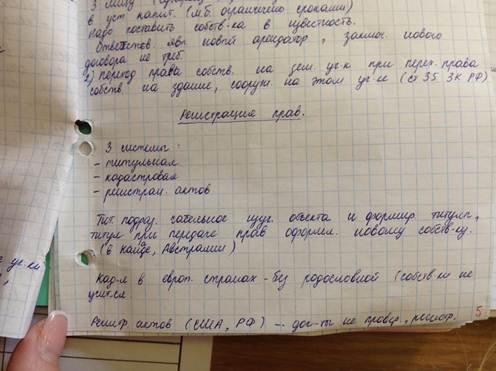 3 лицу
в уст. капит. (М.б. ограничено сроками)
Надо поставить собств-ка в известность.
Ответств. явл. новый арендатор, заключ. нового
договора не треб.
2) переход права собств. на зем. уч-к при перех. права
собств. на здание, сооруж. на этом уч-ке (ст 35 ЗК РФ)
Регистрация прав.
3 системы:
- титульная
- кадастровая
- регистрац. актов
Тит. подраз. сательное изуч. объекта и формир. титула,
титул при передаче прав оформл. новому собств-ку.
(в Канаде, Австралии)
Кад-я в европ. странах - без родословной (собств-ки не
учит-ся.
Регистр. актов (США, РФ) - дог-ты не провер.,
уч-ки
5